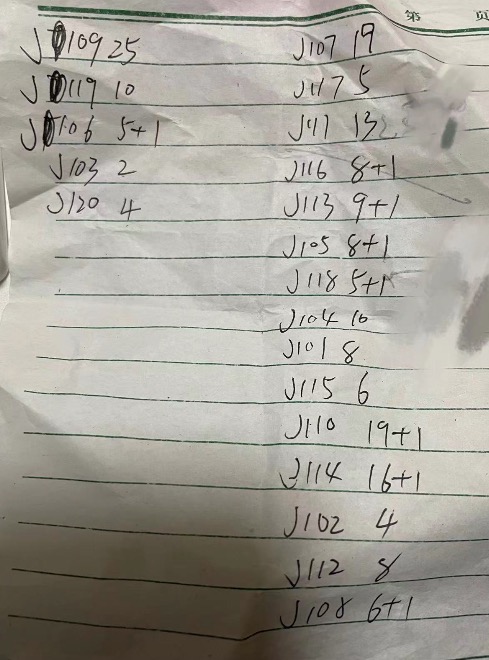 第 页
J109 25
J119 10
J106 5+1
J103 2
J120 4
J107 19
J117 5
J111 13
J116 8+1
J113 9+1
J105 8+1
J118 5+1
J104 10
J101 8
J115 6
J110 19+1
J114 16+1
J102 4
J112 8
J108 6+1